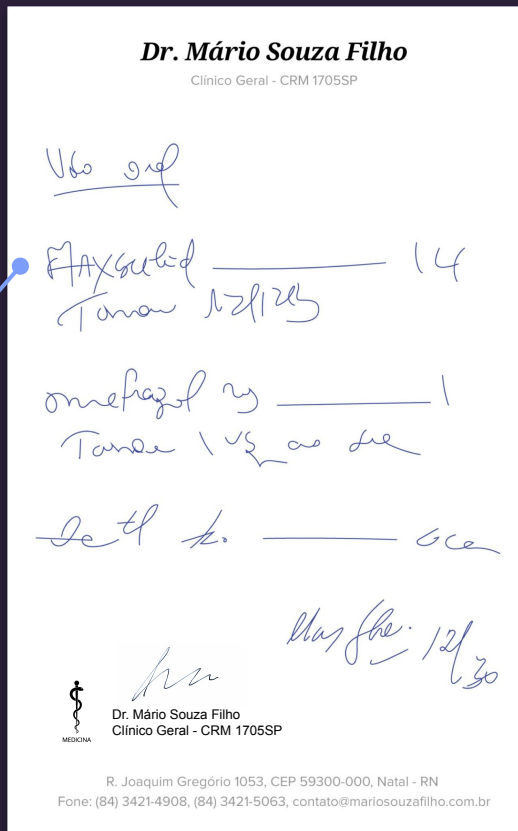 Dr. Mário Souza Filho
Clínico Geral - CRM 1705SP
Uso oral
MAXSULID 14
Tomar 12/12h
omeprazol 1
Tomar 1 ao dia
12/30
MEDICINA
Dr. Mário Souza Filho
Clínico Geral - CRM 1705SP
R. Joaquim Gregório 1053, CEP 59300-000, Natal - RN
Fone: (84) 3421-4908, (84) 3421-5063, contato@mariosouzafilho.com.br